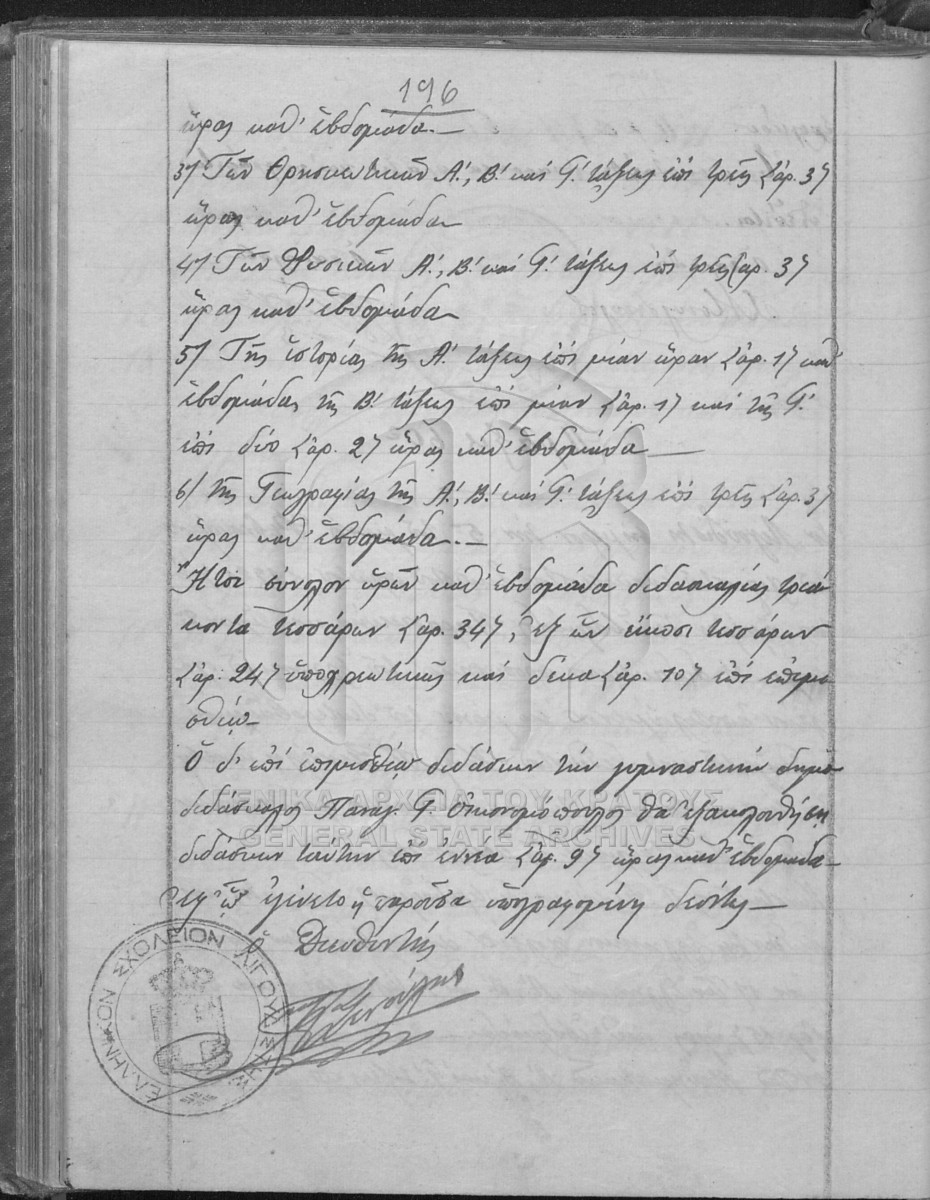 196
ὥρας καθ' ἑβδομάδα.—
3) Τῶν Θρησκευτικῶν Α΄, Β΄ καὶ Γ΄ τάξεως ἐπὶ τρεῖς (ἀρ. 3)
ὥρας καθ' ἑβδομάδα
4) Τῶν Φυσικῶν Α΄, Β΄ καὶ Γ΄ τάξεως ἐπὶ τρεῖς (ἀρ. 3)
ὥρας καθ' ἑβδομάδα
5) Τῆς ἱστορίας τῆς Α΄ τάξεως ἐπὶ μίαν ὥραν (ἀρ. 1) καθ'
ἑβδομάδα, τῆς Β΄ τάξεως ἐπὶ μίαν (ἀρ. 1) καὶ τῆς Γ΄
ἐπὶ δύο (ἀρ. 2) ὥρας καθ' ἑβδομάδα —
6) τῆς Γεωγραφίας τῆς Α΄, Β΄ καὶ Γ΄ τάξεως ἐπὶ τρεῖς (ἀρ. 3)
ὥρας καθ' ἑβδομάδα.—
Ἤτοι σύνολον ὡρῶν καθ' ἑβδομάδα διδασκαλίας τριά-
κοντα τεσσάρων (ἀρ. 34), ἐξ ὧν εἴκοσι τεσσάρων
(ἀρ. 24) ὑποχρεωτικῶς καὶ δέκα (ἀρ. 10) ἐπὶ ἐπιμι-
σθίῳ—
Ὁ δ' ἐπὶ ἐπιμισθίῳ διδάσκων τὴν γυμναστικὴν δημο-
διδάσκαλος Παναγ. Γ. Οἰκονομόπουλος θὰ ἐξακολουθήσῃ
διδάσκων ταύτην ἐπὶ ἐννέα (ἀρ. 9) ὥρας καθ' ἑβδομάδα—
Ἐφ' ᾧ ἐγένετο ἡ παροῦσα ὑπογραφομένη δεόντως—
Ὁ Διευθυντής
ΕΛΛΗΝΙΚΟΝ ΣΧΟΛΕΙΟΝ
ΓΕΝΙΚΑ ΑΡΧΕΙΑ ΤΟΥ ΚΡΑΤΟΥΣ
GENERAL STATE ARCHIVES